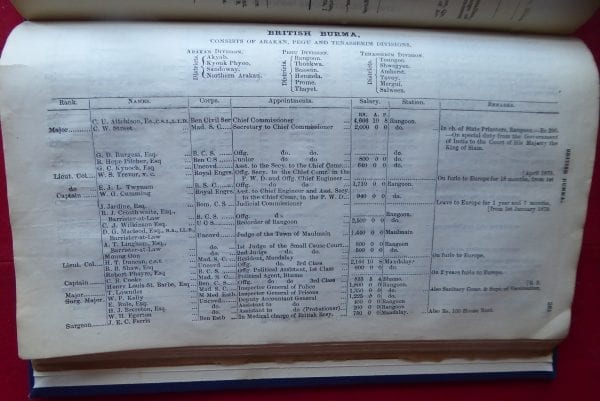 BRITISH BURMA.
CONSISTS OF ARAKAN, PEGU AND TENASSERIM DIVISIONS.
ARAKAN DIVISION. PEGU DIVISION. TENASSERIM DIVISION.
Districts. Akyab. Districts. Rangoon. Districts. Toungoo.
Kyouk Phyoo. Thonkwa. Shwegyen.
Sandoway. Bassein. Amherst.
Northern Arakan. Henzada. Tavoy.
Prome. Mergui.
Thayet. Salween.
Rank. NAMES. Corps. Appointments. Salary. Station. REMARKS.
RS. A. P.
C. U. Aitchison, Ben Civil Ser Chief Commissioner Rangoon
Major C. W. Street Mad. S. C. Secretary to Chief Commissioner 2,000 0 0 do. In ch. of State Prisoners, Rangoon.
On special duty from the Government of India to the Court of His Majesty the King of Siam.
G. D. Burgess, Esq B. C. S. Offg. do. do.
D. Hope Pilcher, Esq Ben C S do do 800 0 0 do.
G. C. Kynoch, Esq Uncovd Asst. to the Secy. to the Chief Comr. 640 0 0 do.
Lieut. Col. W. S. Trevor, V. C. Royal Engrs. Offg. Secy. to the Chief Comr. in the P. W. D. and Offg. Chief Engineer [April 1878.
On furlo to Europe for 18 months, from 1st
do E. J. L. Twynam B. S. C. Offg. do do 1,710 0 0 Rangoon.
Captain W. G. Cumming Royal Engrs Asst. to Chief Engineer and Asst. Secy. to the Chief Comr. in the P. W. D. 940 0 0 do.
J. Jardine, Esq Bom. C. S Judicial Commissioner Leave to Europe for 1 year and 7 months, [from 1st January 1879.
R. J. Crosthwaite, Esq., Barrister-at-Law B. C. S. Offg. do Rangoon.
C. J. Wilkinson Esq Recorder of Rangoon 2,500 0 0 do.
D. G. Macleod, Esq., Barrister-at-Law Uncovd Judge of the Town of Maulmain 1,400 0 0 Maulmain
A. T. Lingham, Esq., Barrister-at-Law do. 1st Judge of the Small Cause Court. 800 0 0 Rangoon
Moung Oon do. 2nd Judge do. do. 500 0 0 do.
Lieut. Col. H. T. Duncan, Mad. S. C. Resident, Mandalay On furlo to Europe.
R. B. Shaw, Esq Uncovd Offg. do 3rd Class 2,144 10 8 Mandalay
Robert Phayre, Esq do. Offg. Political Assistant, 1st Class 600 0 0 do. On 2 years furlo to Europe.
Captain C. B. Cooke Mad. S. C. Political Agent, Bhamo
Harry Louis St. Barbe, Esq Ben. C. S. Offg. do do 3rd Class Bhamo.
Major J. Davides Mad S. C. Inspector General of Police 1,800 0 0 Rangoon
Surg. Major W. P. Kelly M Med Estb. Inspector General of Prisons 1,350 0 0 do. Also Sanitary Comr.
E. Rule, Esq Uncovd Deputy Accountant General 1,225 0 0 do.
H. J. Brereton, Esq do. Assistant to do 400 0 0 Rangoon
W. H. Egerton do. Assistant to do (Probationer). 200 0 0 Rangoon
Surgeon J. E. C. Ferris Ben Estb In Medical charge of British Resy. 750 0 0 Mandalay. Also Rs. 100 House Rent.
BRITISH BURMA.